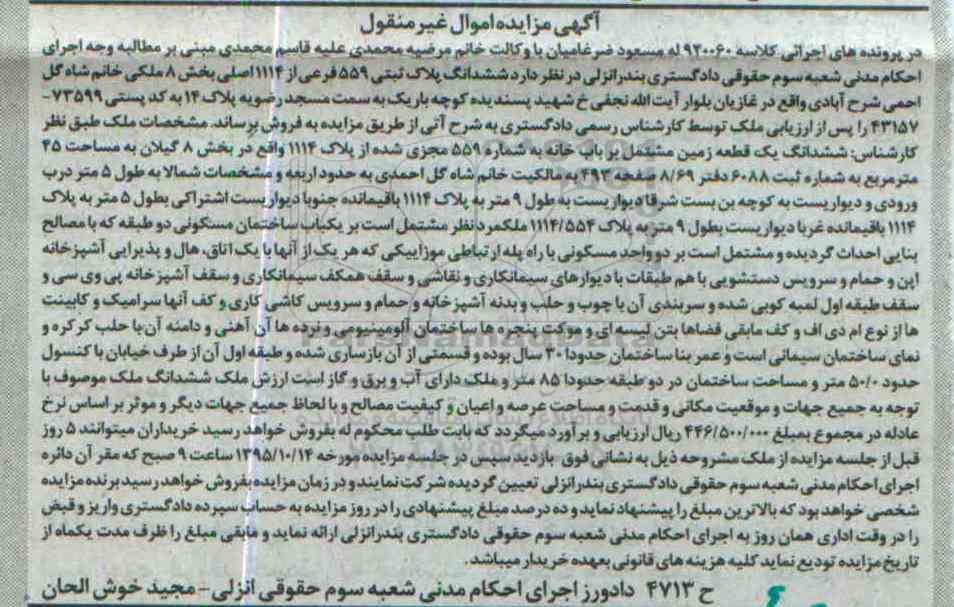 آگهی مزایده اموال غیر منقول
در پرونده های اجرائی کلاسه ۹۳۰۰۶۰ له مسعود ضرغامیان با وکالت خانم مرضیه محمدی علیه قاسم محمدی مبنی بر مطالبه وجه اجرای
احکام مدنی شعبه سوم حقوقی دادگستری بندرانزلی در نظر دارد ششدانگ پلاک ثبتی ۵۵۹ فرعی از ۱۱۱۴ اصلی بخش ۸ ملکی خانم شاه گل
احمی شرح آبادی واقع در غازیان بلوار آیت الله نجفی خ شهید پسندیده کوچه باریک به سمت مسجد رضویه پلاک ۱۴ به کد پستی ۷۳۵۹۹-
۴۳۱۵۷ را پس از ارزیابی ملک توسط کارشناس رسمی دادگستری به شرح آتی از طریق مزایده به فروش برساند. مشخصات ملک طبق نظر
کارشناس: ششدانگ یک قطعه زمین مشتمل بر باب خانه به شماره ۵۵۹ مجزی شده از پلاک ۱۱۱۴ واقع در بخش ۸ گیلان به مساحت ۴۵
مترمربع به شماره ثبت ۶۰۸۸ دفتر ۸/۶۹ صفحه ۴۹۳ به مالکیت خانم شاه گل احمدی به حدود اربعه و مشخصات شمالا به طول ۵ متر درب
ورودی و دیواریست به کوچه بن بست شرقا دیواریست به طول ۹ متر به پلاک ۱۱۱۴ باقیمانده جنوبا دیواریست اشتراکی بطول ۵ متر به پلاک
۱۱۱۴ باقیمانده غربا دیواریست بطول ۹ متر به پلاک ۱۱۱۴/۵۵۴ ملکمورد نظر مشتمل است بر یکباب ساختمان مسکونی دو طبقه که با مصالح
بنایی احداث گردیده و مشتمل است بر دو واحد مسکونی با راه پله ارتباطی موزاییکی که هر یک از آنها با یک اتاق، هال و پذیرایی آشپزخانه
اپن و حمام و سرویس دستشویی با هم طبقات با دیوارهای سیمانکاری و نقاشی و سقف همکف سیمانکاری و سقف آشپزخانه پی وی سی و
سقف طبقه اول لمبه کوبی شده و سربندی آن با چوب و حلب و بدنه آشپزخانه و حمام و سرویس کاشی کاری و کف آنها سرامیک و کابینت
ها از نوع ام دی اف و کف مابقی فضاها بتن لیسه ای و موکت پنجره ها ساختمان آلومینیومی و نرده ها آن آهنی و دامنه آن با حلب کرکره و
نمای ساختمان سیمانی است و عمر بنا ساختمان حدودا ۳۰ سال بوده و قسمتی از آن بازسازی شده و طبقه اول آن از طرف خیابان با کنسول
حدود ۵۰/۰ متر و مساحت ساختمان در دو طبقه حدودا ۸۵ متر و ملک دارای آب و برق و گاز است ارزش ملک ششدانگ ملک موصوف با
توجه به جمیع جهات و موقعیت مکانی و قدمت و مساحت عرصه و اعیان و کیفیت مصالح و با لحاظ جمیع جهات دیگر و موثر بر اساس نرخ
عادله در مجموع بمبلغ ۴۴۶/۵۰۰/۰۰۰ ریال ارزیابی و برآورد میگردد که بابت طلب محکوم له بفروش خواهد رسید خریداران میتوانند ۵ روز
قبل از جلسه مزایده از ملک مشروحه ذیل به نشانی فوق بازدید سپس در جلسه مزایده مورخه ۱۳۹۵/۱۰/۱۴ ساعت ۹ صبح که مقر آن دائره
اجرای احکام مدنی شعبه سوم حقوقی دادگستری بندرانزلی تعیین گردیده شرکت نمایند و در زمان مزایده بفروش خواهد رسید برنده مزایده
شخصی خواهد بود که بالاترین مبلغ را پیشنهاد نماید و ده درصد مبلغ پیشنهادی را در روز مزایده به حساب سپرده دادگستری واریز و قبض
را در وقت اداری همان روز به اجرای احکام مدنی شعبه سوم حقوقی دادگستری بندرانزلی ارائه نماید و مابقی مبلغ را ظرف مدت یکماه از
تاریخ مزایده تودیع نماید کلیه هزینه های قانونی بعهده خریدار میباشد.
ح ۴۷۱۳ دادورز اجرای احکام مدنی شعبه سوم حقوقی انزلی - مجید خوش الحان